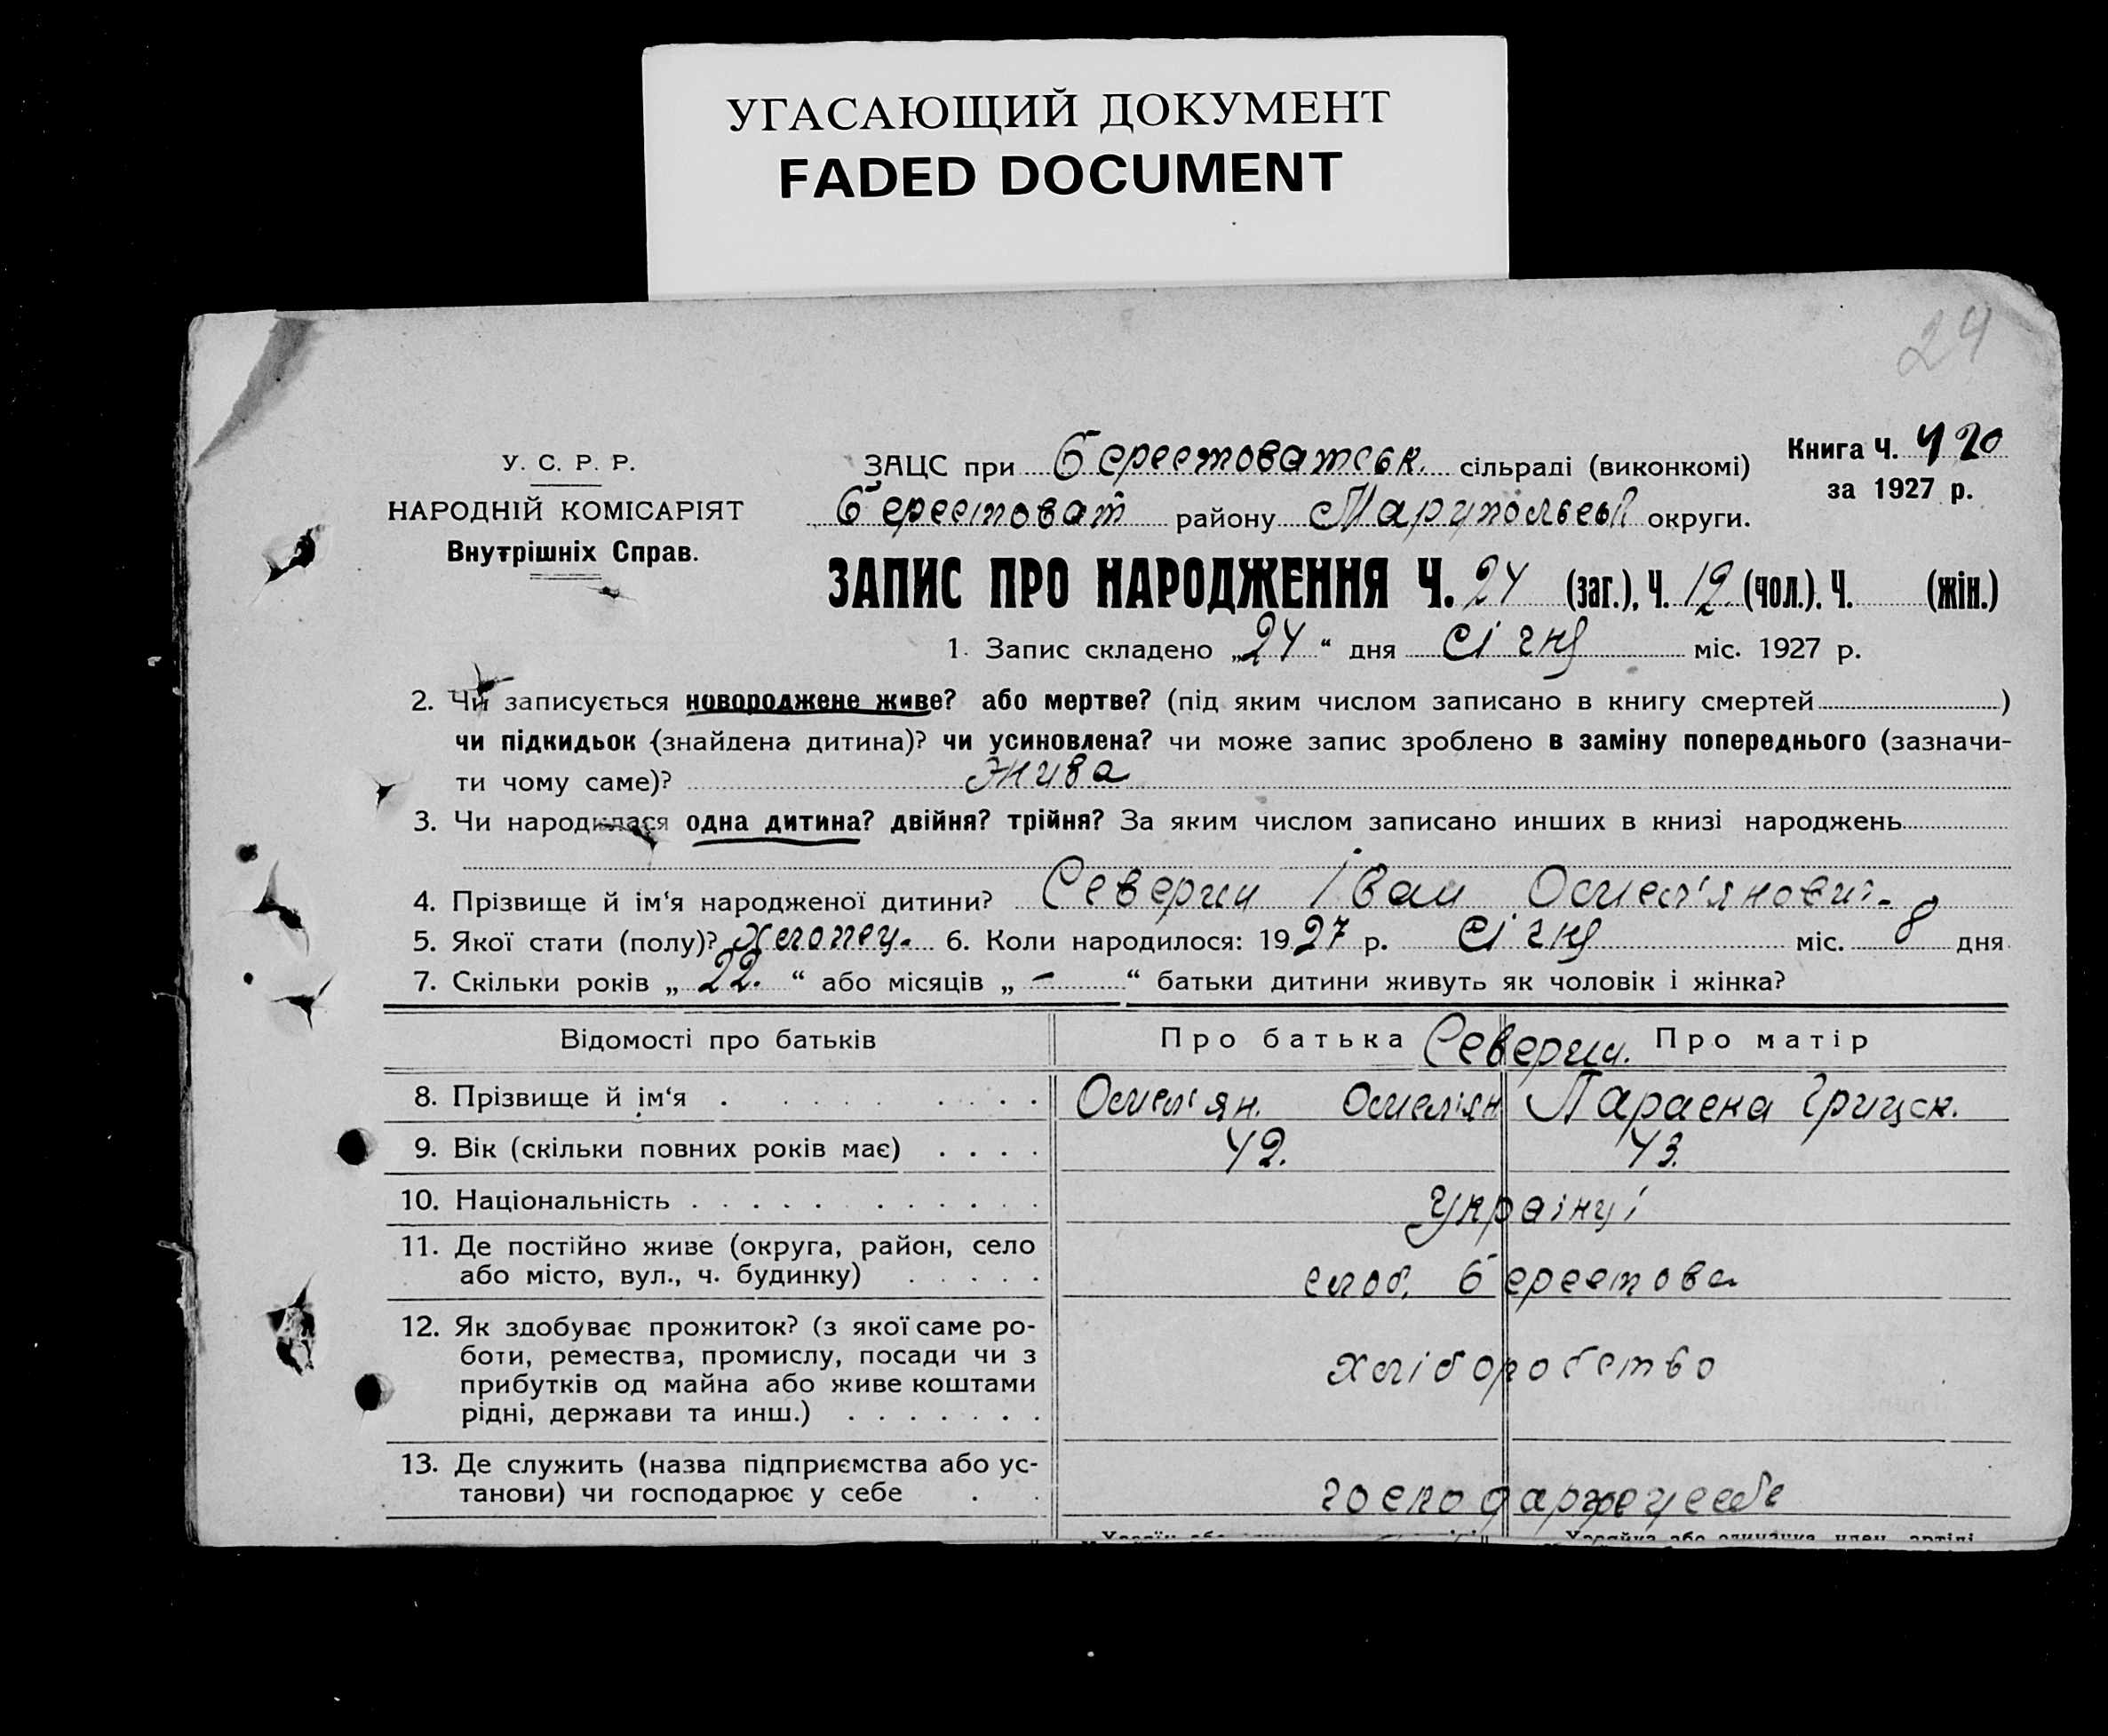 УГАСАЮЩИЙ ДОКУМЕНТ
FADED DOCUMENT
24
У. С. Р. Р.
НАРОДНІЙ КОМІСАРІЯТ
Внутрішніх Справ.
ЗАЦС при Берестоватськ. сільраді (виконкомі)
Берестоват району Марупольськ округи.
Книга Ч. 420
за 1927 р.
ЗАПИС ПРО НАРОДЖЕННЯ Ч. 24 (заг.), Ч. 12 (чол.). Ч. (жін.)
1. Запис складено „24“ дня січня міс. 1927 р.
2. Чи записується новороджене живе? або мертве? (під яким числом записано в книгу смертей )
чи підкидьок (знайдена дитина)? чи усиновлена? чи може запис зроблено в заміну попереднього (зазначи-
ти чому саме)? Жива
3. Чи народилася одна дитина? двійня? трійня? За яким числом записано инших в книзі народжень
4. Прізвище й ім‘я народженої дитини? Северин Іван Омел'янович-
5. Якої стати (полу)? Хлопец. 6. Коли народилося: 1927 р. січня міс. 8 дня
7. Скільки років „22.“ або місяців „—“ батьки дитини живуть як чоловік і жінка?
Відомості про батьків Про батька Северин. Про матір
8. Прізвище й ім‘я Омел'ян. Омел'ян Параска Грицск.
9. Вік (скільки повних років має) 42. 43.
10. Національність Українці
11. Де постійно живе (округа, район, село
або місто, вул., ч. будинку) слоб. Берестова
12. Як здобуває прожиток? (з якої саме ро-
боти, ремества, промислу, посади чи з
прибутків од майна або живе коштами
рідні, держави та инш.) хліборобство
13. Де служить (назва підприємства або ус-
танови) чи господарює у себе господарює у себе